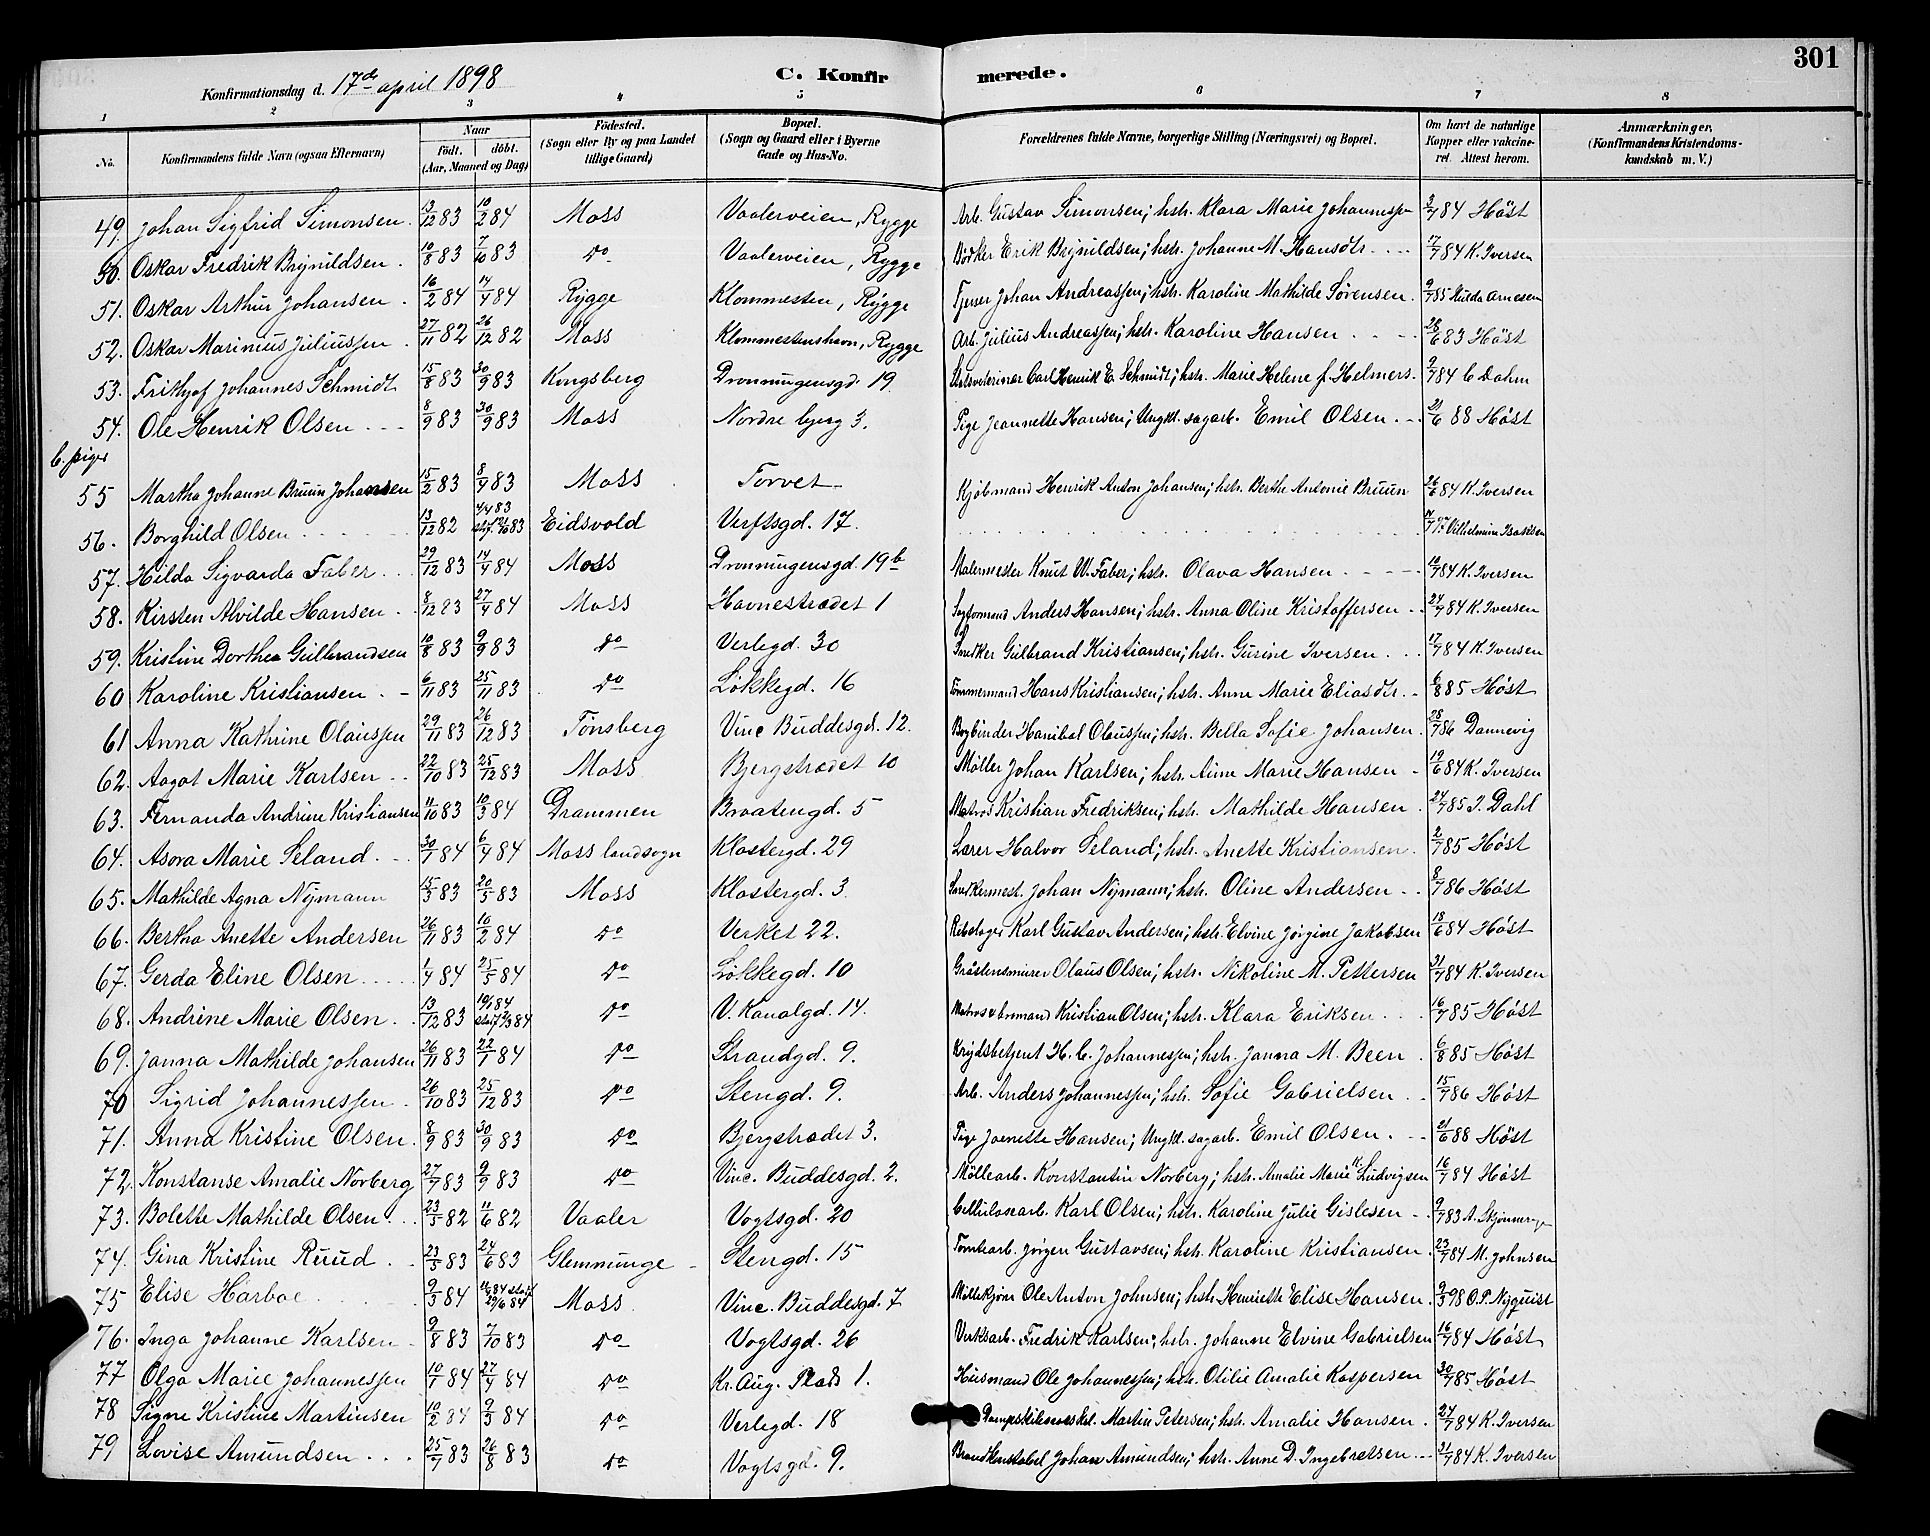 301
Konfirmationsdag d. 17de april 1898 C. Konfirmerede.
1 2 3 4 5 6 7 8
No. Konfirmandens fulde Navn (ogsaa Efternavn) Naar födt. döbt. (Aar, Maaned og Dag) Födested. (Sogn eller By og paa Landet tillige Gaard) Bopæl. (Sogn og Gaard eller i Byerne Gade og Hus-No. Forældrenes fulde Navne, borgerlige Stilling (Næringsvei) og Bopæl. Om havt de naturlige Kopper eller vakcineret. Attest herom. Anmærkninger. (Konfirmandens Kristendomskundskab m. V.)
49. Johan Sigfrid Simonsen. 13/12 83 10/2 84 Moss Vaalerveien, Rygge Arb. Gustav Simonsen; hstr. Klara Marie Johannessen 3/7 84 Höst
50. Oskar Fredrik Brynildsen. 10/8 83 7/10 83 Do Vaalerveien, Rygge Bødker Erik Brynildsen; hstr. Johanne M. Hansdtr. 17/7 84 K. Iversen
51. Oskar Arthur Johansen. 16/2 84 14/4 84 Rygge Klommesten, Rygge Johan Andreassen; hstr. Karoline Mathilde Sørensen. 9/7 85 Hulda Arnesen
52. Oskar Marinius Juliussen 27/11 82 26/12 82 Moss Klommestenshavn, Rygge Arb. Julius Andreassen; hstr. Karoline Hansen 28/6 83 Höst
53. Frithjof Johannes Schmidt 15/8 83 30/9 83 Kongsberg Dronningensgd. 19 Carl Henrik E. Schmidt; hstr. Marie Helene f. Helmers. 9/7 84 C Dahm
54. Ole Henrik Olsen 8/9 83 30/9 83 Moss Nordre bjerg 3. Pige Jeannette Hansen; Ungkl. sagarb. Emil Olsen 21/6 88 Höst
b. piger
55 Martha Johanne Bruun Johansen 15/2 83 8/4 83 Moss Torvet Kjøbmand Henrik Anton Johansen; hstr. Berthe Antonie Bruun 26/6 84 K. Iversen
56. Borghild Olsen 13/12 82 4/4 83 83 Eidsvold Verftsgd. 17. 14/7 97 Vilhelmine Isaksen
57. Hilda Sigvarda Faber 29/12 83 14/4 84 Moss Dronningensgd. 19b Malermester Knut W. Faber; hstr. Olava Hansen 10/7 84 K. Iversen
58. Kirsten Alvilde Hansen 8/12 83 27/4 84 Moss Havnestrædet 1 Anders Hansen; hstr. Anna Oline Kristoffersen 24/7 84 K. Iversen
59. Kristine Dorthea Gulbrandsen 10/8 83 9/9 83 Do Verlegd. 30 Snedker Gulbrand Kristiansen; hstr. Gurine Iversen 17/7 84 K. Iversen
60 Karoline Kristiansen 6/11 83 25/11 83 Do Løkkegd. 16 Tömmermand Hans Kristiansen; hstr. Anne Marie Eliasdtr. 6/8 85 Höst
61 Anna Kathrine Olaussen 29/11 83 26/12 83 Tønsberg Vinc Buddesgd. 12. Bogbinder Hanibal Olaussen; hstr. Bella Sofie Johansen. 28/7 86 Dannevig
62. Aagot Marie Karlsen 22/10 83 25/12 83 Moss Bjergstrædet 10 Møller Johan Karlsen; hstr. Anne Marie Hansen 19/6 84 K. Iversen
63. Fernanda Andrine Kristiansen 11/10 83 10/3 84 Drammen Braatengd. 5 Matros Kristian Fredriksen; hstr. Mathilde Hansen. 24/7 85 J. Dahl
64. Asora Marie Seland 30/1 84 6/4 84 Moss landsogn Klostergd. 29 Lærer Halvor Seland; hstr. Anette Kristiansen. 2/7 85 Höst
65. Mathilde Agna Nymann 15/3 83 20/5 83 Moss Klostergd. 3. Snedkermest. Johan Nymann; hstr. Oline Andersen 8/7 86 Höst
66. Bertha Anette Andersen 26/11 83 10/2 84 Do Verket 22. Karl Gustav Andersen; hstr. Elvine Jørgine Jakobsen 18/6 84 Höst
67. Gerda Eline Olsen 1/4 84 25/5 84 Do Løkkegd. 10 Gråstensmurer Olaus Olsen; hstr. Nikoline M. Pettersen 31/7 84 K. Iversen
68. Andrine Marie Olsen 13/12 83 19/1 84 84 Do V. Kanalgd. 14. Kristian Olsen; hstr. Klara Eriksen 16/7 85 Höst
69. Janna Mathilde Johansen 26/11 83 22/1 84 Do Strandgd. 9. Krydsbetjent H. C. Johannessen; hstr. Janna M. Been 6/8 85 Höst
70 Sigrid Johannessen 26/10 83 25/12 83 Do Stengd. 9. Arb. Anders Johannessen; hstr. Sofie Gabrielsen 15/7 86 Höst
71. Anna Kristine Olsen. 8/9 83 30/9 83 Do Bjergstrædet 3. Pige Jaenette Hansen; Ungkl. sagarb. Emil Olsen 21/6 88 Höst
72. Konstanse Amalie Norberg 27/7 83 9/9 83 Do Vinc. Buddesgd. 2. Möllearb. Konstantin Norberg; hstr. Amalie Marie K. Ludvigsen 16/7 84 Höst
73. Bolette Mathilde Olsen 23/3 82 11/6 82 Vaaler Vogtsgd. 20 Cellulosearb. Karl Olsen; hstr. Karoline Julie Gislesen 9/7 83
74. Gina Kristine Ruud 23/5 83 24/6 83 Glemminge Stengd. 15 Tomtearb. Jørgen Gustavsen; hstr. Karoline Kristiansen. 23/7 84 M. Johnsen
75 Elise Harboe 9/3 84 11/6 84 29/6 84 Moss Vinc. Buddesgd. 7 Ole Anton Johnsen; hstr. Henriette Elise Hansen. 9/3 98 O. P. Nyquist
76. Inga Johanne Karlsen 9/8 83 7/10 83 Do Vogtsgd. 26 Verksarb. Fredrik Karlsen; hstr. Johanne Elvine Gabrielsen 16/7 84 Höst
77 Olga Marie Johannessen 10/1 84 27/4 84 Do Kr. Aug. Plads 1. Husmand Ole Johannessen; hstr. Otilie Amalie Kaspersen 30/7 85 Höst
78 Signe Kristine Martinsen 10/2 84 9/3 84 Do Verlegd. 18 Martin Petersen; hstr. Amalie Hansen 24/7 84 K. Iversen
79 Lovise Amundsen 25/7 83 26/8 83 Do Vogtsgd. 9. Brandkonstabel Johan Amundsen; hstr. Anne D. Ingebretsen 31/7 84 K. Iversen